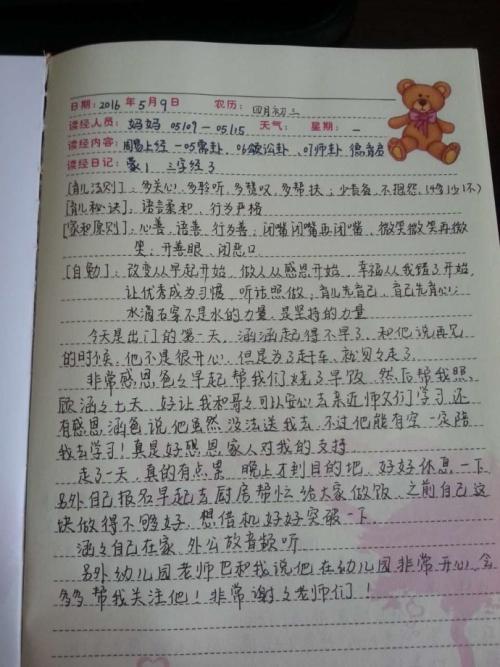 日期: 2016 年 5 月 9 日 农历: 四月初三
读经人员: 妈妈 05/09-05/15 天气: 星期: 一
读经内容: 周易上经-05需卦、06讼卦、07师卦 德育启
读经日记: 蒙1 三字经3
[育儿法则]: 多关心、多聆听、多赞叹、多帮扶; 少责备、不抱怨
[育儿秘诀]: 语言柔和、行为严格
[家和原则]: 心善、语善、行为善, 闭嘴闭嘴再闭嘴、微笑微笑再微
笑; 开善眼、闭恶口
[自勉]: 改变从早起开始, 做人从感恩开始, 幸福从我错了开始,
让优秀成为习惯、听话照做, 育儿先育己, 育己先育心;
水滴石穿不是水的力量, 是坚持的力量
今天是出门的第一天, 涵涵起得不早了, 和他说再见
的时候, 他不是很开心, 但是为了赶车, 就匆匆走了
非常感恩爸爸早起帮我们烧了早饭, 然后帮我照
顾涵涵七天, 好让我和哥可以安心去亲近师父们学习, 还
有感恩涵爸说他虽然没法送我去, 不过他能有空一定陪
我去学习! 真是好感恩家人对我的支持
走了一天, 真的有点累 晚上才到目的地, 好好休息一下
另外自己报名早起去厨房帮忙给大家做饭, 之前自己这
块做得不够好, 想借机好好突破一下
涵涵自己在家 外公放音频听
另外幼儿园老师也和我说他在幼儿园非常开心, 会
多多帮我关注他! 非常谢谢老师们!